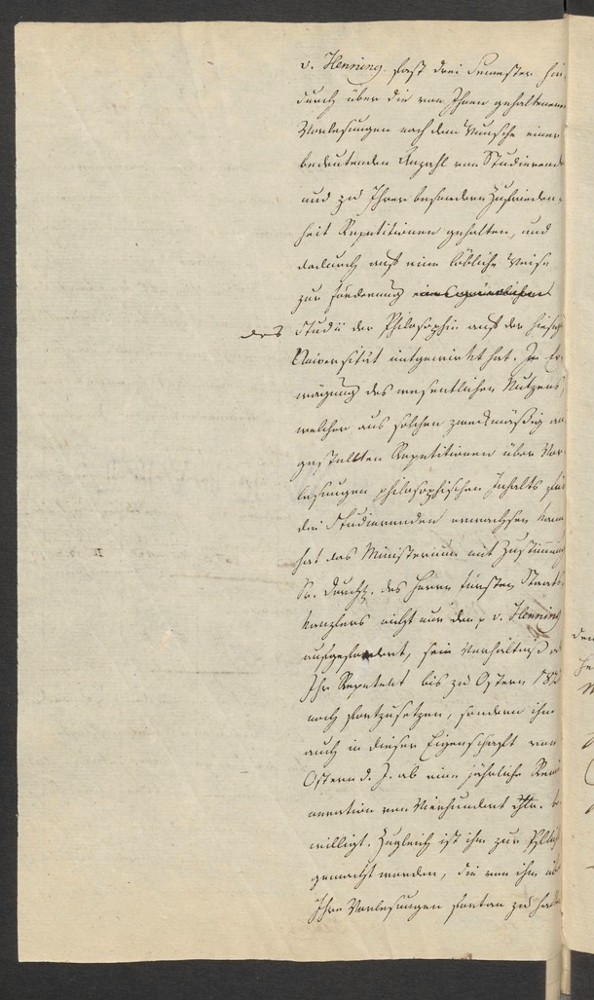 v. Henning fast drei Semester hin
durch über die von Ihnen gehaltenen
Vorlesungen nach dem Wunsche einer
bedeutenden Anzahl von Studierend
und zu Ihrer besondern Zufrieden,
heit Repetitionen gehalten, und
dadurch auf eine löbliche Weise
zur Förderung eines gründlichen
des Studii der Philosophie auf der hiesig
Universität mitgewirkt hat. In Er
wägung des wesentlichen Nutzens,
welcher aus solchen zweckmäßig an
gestellten Repetitionen über Vor
lesungen philosophischen Inhalts für
die Studierenden erwachsen kann
hat das Ministerium mit Zustimmung
Sr. Durchl. des Herrn Fürsten Staats
kanzlers nicht nur den p. v. Henning
aufgefordert, sein Verhältniß a
Ihr Repetent bis zu Ostern 182
noch fortzusetzen, sondern ihm
auch in dieser Eigenschaft von
Ostern d. J. ab eine jährliche Rem
uneration von Vierhundert Thlr. be
willigt. Zugleich ist ihm zur Pflicht
gemacht worden, die von ihm üb
Ihre Vorlesungen fortan zu halt